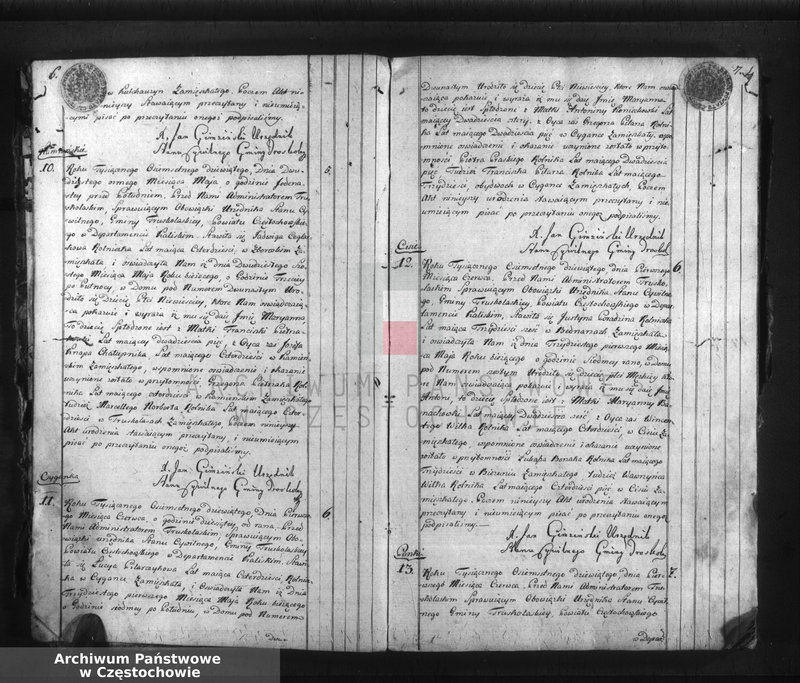 6.
w Kulihauzyn Zamięszkałego. Poczem Akt ni-
nieyszy Stawaiącym przeczytany i nieumieią-
cymi pisać po przeczytaniu onegoż podpisaliśmy.
X. Jan Gimziński Urzędnik
Stanu Cywilnego Gminy Truskolasy
10.
Roku Tysiącznego Osiemsetnego dziewiątego, Dnia Dwu-
dziestego osmego Miesiąca Maja o godzinie Jedena-
stey przed Południem. Przed Nami Administratorem Tru-
skolaskim, Sprawuiącym Obowiązki Urzędnika Stanu Cy-
wilnego, Gminy Truskolaskiey, Powiatu Częstochowskie-
go w Departamencie Kaliskim. Stawiła się Jadwiga
Kolniczka Lat maiąca Czterdzieści, w Za-
mięszkała i oświadczyła Nam iż dnia Dwudziestego
Miesiąca Maja Roku bieżącego, o Godzinie Trzeciey
po Pułnocy, w Domu pod Numerem Dwunastym Uro-
dziło się dziecię Płci Niewieściey, które Nam oświadczaią-
ca pokazuie i wyraża iż mu się daie Jmię Maryanna.
To dziecię Spłodzone iest z Matki Franciszki
Lat maiącey Dwadzieścia pięć, z Oyca zaś Józefa
Knapa Chałupnika, Lat maiącego Czterdzieści w Kamien-
skim Zamięszkałego, wspomnione oświadczenie i okazanie
uczynione zostało w przytomności Grzegorza Kol-
nika Lat maiącego czterdzieści w Kamienskim Zamięszkałego
tudzież Marcellego Norberta Kolnika Lat maiącego Czter-
dzieści w Truskolasach Zamięszkałego Poczem ninieyszy
Akt urodzenia stawaiącym przeczytany, i nieumieiącym
pisać po przeczytaniu onegoż podpisaliśmy.
5.
X. Jan Gimziński Urzędnik
Stanu Cywilnego Gminy Truskolasy
Cyganka
11.
Roku Tysiącznego Osiemsetnego dziewiątego, Dnia Pierwsze-
go Miesiąca Czerwca, o godzinie dziesiątey, od rana. Przed
Nami Administratorem Truskolaskim, Sprawuiącym Obo-
wiązki urzędnika Stanu Cywilnego, Gminy Truskolaskiey
Powiatu Częstochowskiego w Departamencie Kaliskim, Stawi-
ła się Łucya Lat maiąca Czterdzieści Kolnicz-
ka w Cygance Zamięszkała, i Oświadczyła Nam iż Dnia
Trzydziestego pierwszego Miesiąca Maja Roku bieżącego
o Godzinie siódmey po Południu, w Domu pod Numerem
6.
7.
Dwunastym Urodziło się dziecię Płci Niewieściey, które Nam oświad-
czaiąca pokazuie, i wyraża iż mu się daie Jmię Maryanna
to dziecię iest Spłodzone z Matki Antoniny
maiącey Dwadzieścia cztery, z Oyca zaś Grzegorza Pilarza Kolni-
ka Lat maiącego Dwadzieścia pięć w Cygance Zamięszkałych, wspo-
mnione oświadczenie i okazanie uczynione zostało w przyto-
mności Piotra Kolnika Lat maiącego Dwadzieścia
pięć Tudzież Franciszka Pilarza Kolnika Lat maiącego
Trzydzieści, obydwóch w Cygance Zamięszkałych. Poczem
Akt ninieyszy urodzenia stawaiącym przeczytany, i nie-
umieiącym pisać po przeczytaniu onegoż podpisaliśmy.
X. Jan Gimziński Urzędnik
Stanu Cywilnego Gminy Truskol
Cisie
12.
Roku Tysiącznego Osiemsetnego dziewiątego dnia Pierwszego
Miesiąca Czerwca. Przed Nami Administratorem Trusko-
laskim Sprawuiącym Obowiązki Urzędnika Stanu Cywilne-
go, Gminy Truskolaskiey Powiatu Częstochowskiego w Depar-
tamencie Kaliskim, Stawiła się Justyna Kolniczka
Lat maiąca Trzydzieści sześć w Kiednarach Zamięszkała.
i oświadczyła Nam iż dnia Trzydziestego pierwszego Miesią-
ca Maja Roku bieżącego o godzinie Siódmey rano, w Domu
pod Numerem Urodziło się dziecię płci Męskiey któ-
re Nam oświadczaiąca pokazuie i wyraża iż mu się daie Jmię
Antoni, to dziecię Spłodzone iest z Matki Maryanny
Lat maiącey Dwadzieścia sześć z Oyca zaś Wincen-
tego Wilka Kolnika Lat maiącego Czterdzieści, w Cisiu Za-
mięszkałego. wspomnione oświadczenie i okazanie uczynione
zostało w przytomności Łukasza Kolnika Lat maiącego
Trzydzieści w Zamięszkałego tudzież Wawrzyńca
Wilka Kolnika Lat maiącego Czterdzieści pięć w Cisiu Za-
mięszkałego. Poczem ninieyszy Akt urodzenia stawaiącym
przeczytany i nieumieiącym pisać po przeczytaniu onegoż
podpisaliśmy.
6.
X. Jan Gimziński Urzędnik
Stanu Cywilnego Gminy Truskol
13.
Roku Tysiącznego Osiemsetnego dziewiątego, dnia Pierw-
szego Miesiąca Czerwca, Przed Nami Administratorem Tru-
skolaskim Sprawuiącym Obowiązki Urzędnika Stanu Cywil-
nego Gminy Truskolaskiey, Powiatu Częstochowskiego
7.
w Depart
Archiwum Państwowe
w Częstochowie